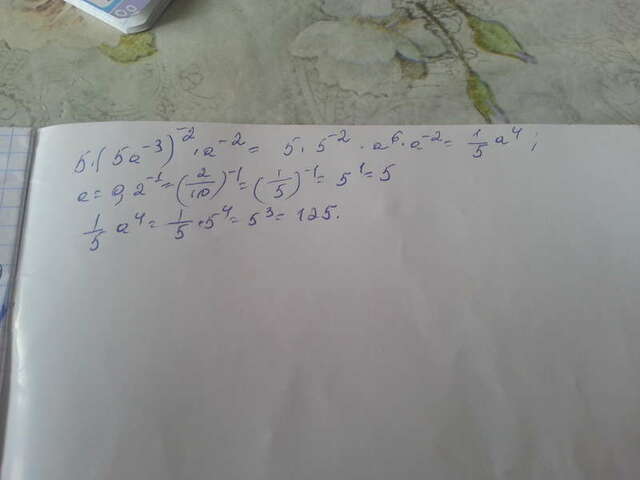 5·(5a⁻³)⁻²·a⁻² = 5·5⁻²·a⁶·a⁻² = 1/5 a⁴;
a = 0,2⁻¹ = (2/10)⁻¹ = (1/5)⁻¹ = 5¹ = 5
1/5 a⁴ = 1/5·5⁴ = 5³ = 125.